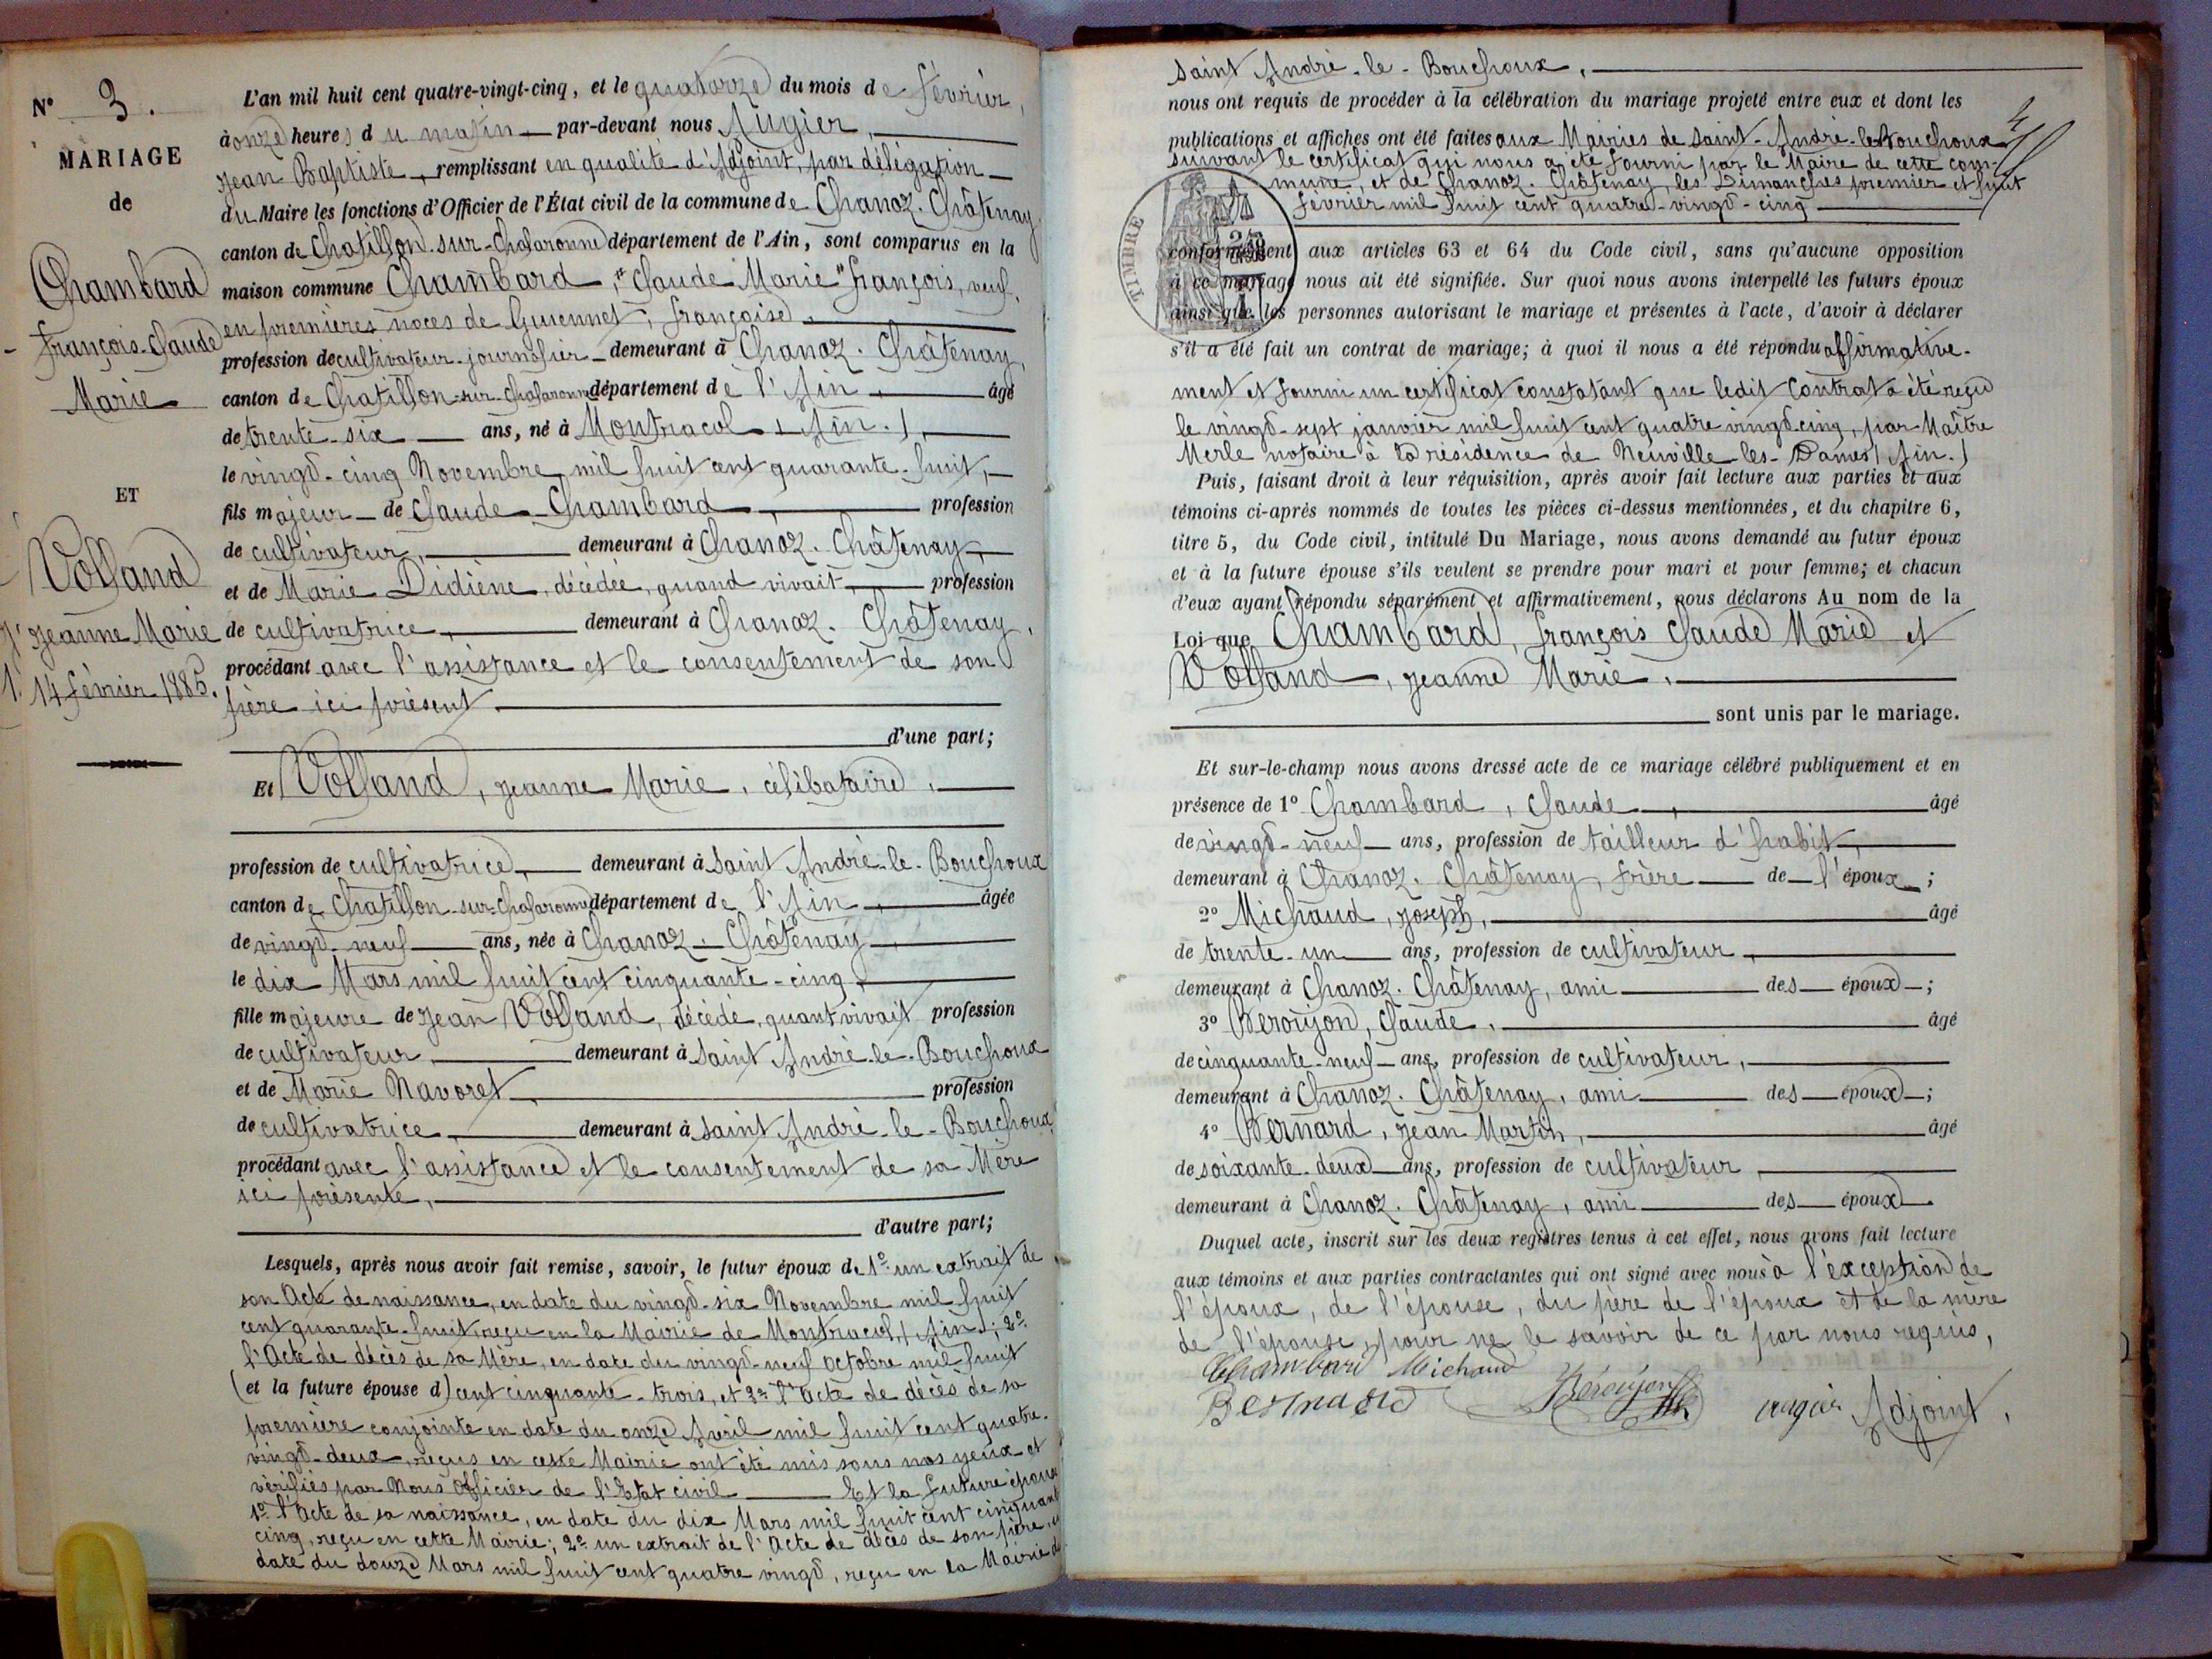 N° 3.
MARIAGE
de
Chambard
François-Claude
Marie
ET
Volland
Jeanne Marie
14 février 1885.
L'an mil huit cent quatre-vingt-cinq, et le quatorze du mois de février,
à onze heures du matin par-devant nous Augier,
Jean Baptiste, remplissant en qualité d'Adjoint, par délégation
du Maire les fonctions d'Officier de l'État civil de la commune de Chanoz-Châtenay,
canton de Chatillon-sur-Chalaronne département de l'Ain, sont comparus en la
maison commune Chambard, "Claude Marie" François, veuf,
en premières noces de Guiennet, Françoise.
profession de cultivateur-journalier demeurant à Chanoz-Châtenay,
canton de Chatillon-sur-Chalaronne département de l'Ain, âgé
de trente-six ans, né à Montracol (Ain.),
le vingt-cinq Novembre mil huit cent quarante-huit,
fils majeur de Claude Chambard, profession
de cultivateur, demeurant à Chanoz-Châtenay,
et de Marie Didiène, décédée, quand vivait profession
de cultivatrice, demeurant à Chanoz-Châtenay,
procédant avec l'assistance et le consentement de son
père ici présent.
d'une part;
Et Volland, Jeanne Marie, célibataire,
profession de cultivatrice, demeurant à Saint André-le-Bouchoux
canton de Chatillon-sur-Chalaronne département de l'Ain, âgée
de vingt-neuf ans, née à Chanoz-Châtenay,
le dix Mars mil huit cent cinquante-cinq,
fille majeure de Jean Volland, décédé, quant vivait profession
de cultivateur, demeurant à Saint André-le-Bouchoux
et de Marie Navoret, profession
de cultivatrice, demeurant à Saint André-le-Bouchoux,
procédant avec l'assistance et le consentement de sa Mère
ici présente,
d'autre part;
Lesquels, après nous avoir fait remise, savoir, le futur époux de 1° un extrait de
son Acte de naissance, en date du vingt-six Novembre mil huit
cent quarante-huit, reçu en la Mairie de Montracol, (Ain); 2°
l'Acte de décès de sa Mère, en date du vingt-neuf Octobre mil huit
(et la future épouse d) cent cinquante-trois, et 3° l'acte de décès de sa
première conjointe en date du onze Avril mil huit cent quatre-
vingt-deux, reçus en cette Mairie ont été mis sous nos yeux et
vérifiés par Nous Officier de l'Etat civil Et la future épouse
1° l'Acte de sa naissance, en date du dix Mars mil huit cent cinquante
cinq, reçu en cette Mairie; 2° un extrait de l'Acte de décès de son père, en
date du douze Mars mil huit cent quatre vingt, reçu en la Mairie de
Saint André-le-Bouchoux,
nous ont requis de procéder à la célébration du mariage projeté entre eux et dont les
publications et affiches ont été faites aux Mairies de Saint-André-le-Bouchoux
suivant le certificat qui nous a été fourni par le Maire de cette com-
mune, et de Chanoz-Châtenay, les Dimanches premier et huit
février mil huit cent quatre-vingt-cinq
TIMBRE
conformément aux articles 63 et 64 du Code civil, sans qu'aucune opposition
à ce mariage nous ait été signifiée. Sur quoi nous avons interpellé les futurs époux
ainsi que les personnes autorisant le mariage et présentes à l'acte, d'avoir à déclarer
s'il a été fait un contrat de mariage; à quoi il nous a été répondu affirmative-
ment et fourni un certificat constatant que ledit Contrat a été reçu
le vingt-sept janvier mil huit cent quatre vingt-cinq, par Maître
Merle notaire à la résidence de Neuville-les-Dames (Ain.)
Puis, faisant droit à leur réquisition, après avoir fait lecture aux parties et aux
témoins ci-après nommés de toutes les pièces ci-dessus mentionnées, et du chapitre 6,
titre 5, du Code civil, intitulé Du Mariage, nous avons demandé au futur époux
et à la future épouse s'ils veulent se prendre pour mari et pour femme; et chacun
d'eux ayant répondu séparément et affirmativement, nous déclarons Au nom de la
Loi que Chambard, François Claude Marie et
Volland, Jeanne Marie,
sont unis par le mariage.
Et sur-le-champ nous avons dressé acte de ce mariage célébré publiquement et en
présence de 1° Chambard, Claude, âgé
de vingt-neuf ans, profession de tailleur d'habit,
demeurant à Chanoz-Châtenay, frère de l'époux;
2° Michaud, Joseph, âgé
de trente-un ans, profession de cultivateur,
demeurant à Chanoz-Châtenay, ami des époux;
3° Beroujon, Claude, âgé
de cinquante-neuf ans, profession de cultivateur,
demeurant à Chanoz-Châtenay, ami des époux;
4° Bernard, Jean Martin, âgé
de soixante-deux ans, profession de cultivateur,
demeurant à Chanoz-Châtenay, ami des époux.
Duquel acte, inscrit sur les deux registres tenus à cet effet, nous avons fait lecture
aux témoins et aux parties contractantes qui ont signé avec nous à l'exception de
l'époux, de l'épouse, du père de l'époux et de la mère
de l'épouse, pour ne le savoir de ce par nous requis,
Chambard Michaud
Bernard Béroujon augier Adjoint,